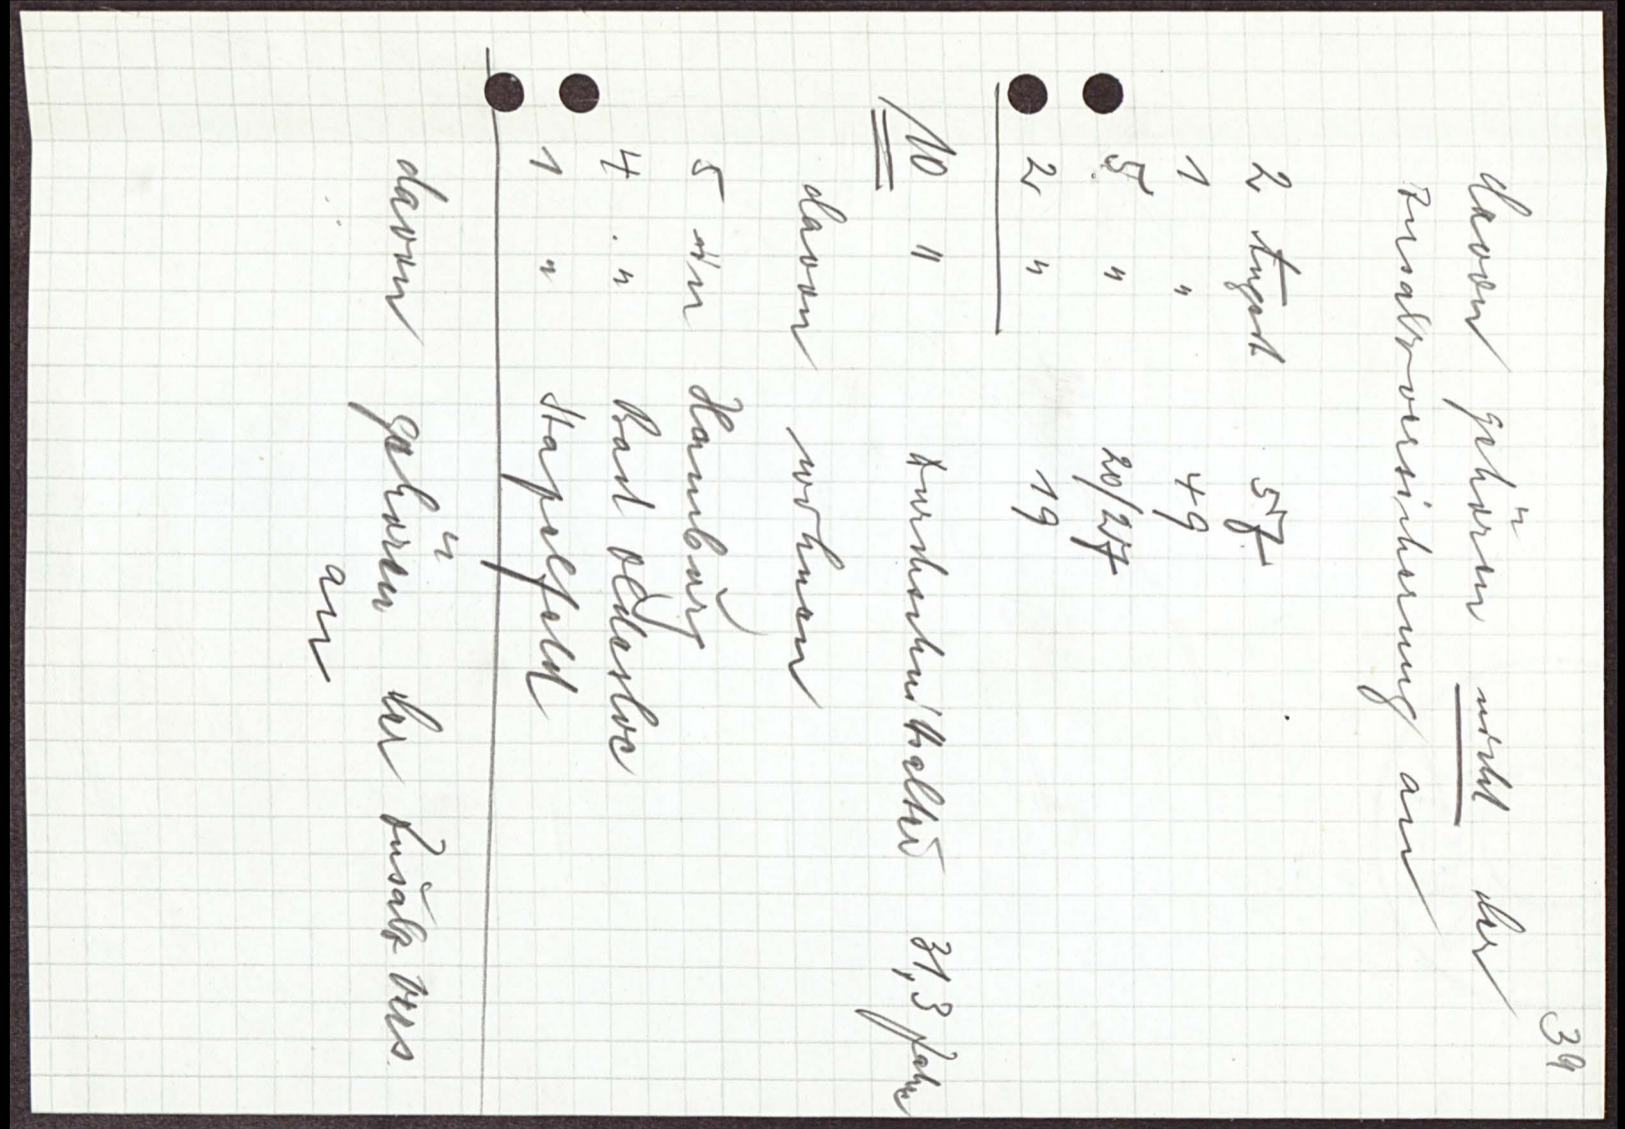 39
davon gehören nicht der
Zusatzversicherung an
2 Angest 57
1 " 49
5 " 20/27
2 " 19
10 " Durchschnittsalter 31,3 Jahre
davon wohnen
5 in Hamburg
4 " Bad Oldesloe
1 " Stapelfeld
davon gehören der Zusatzvers.
an